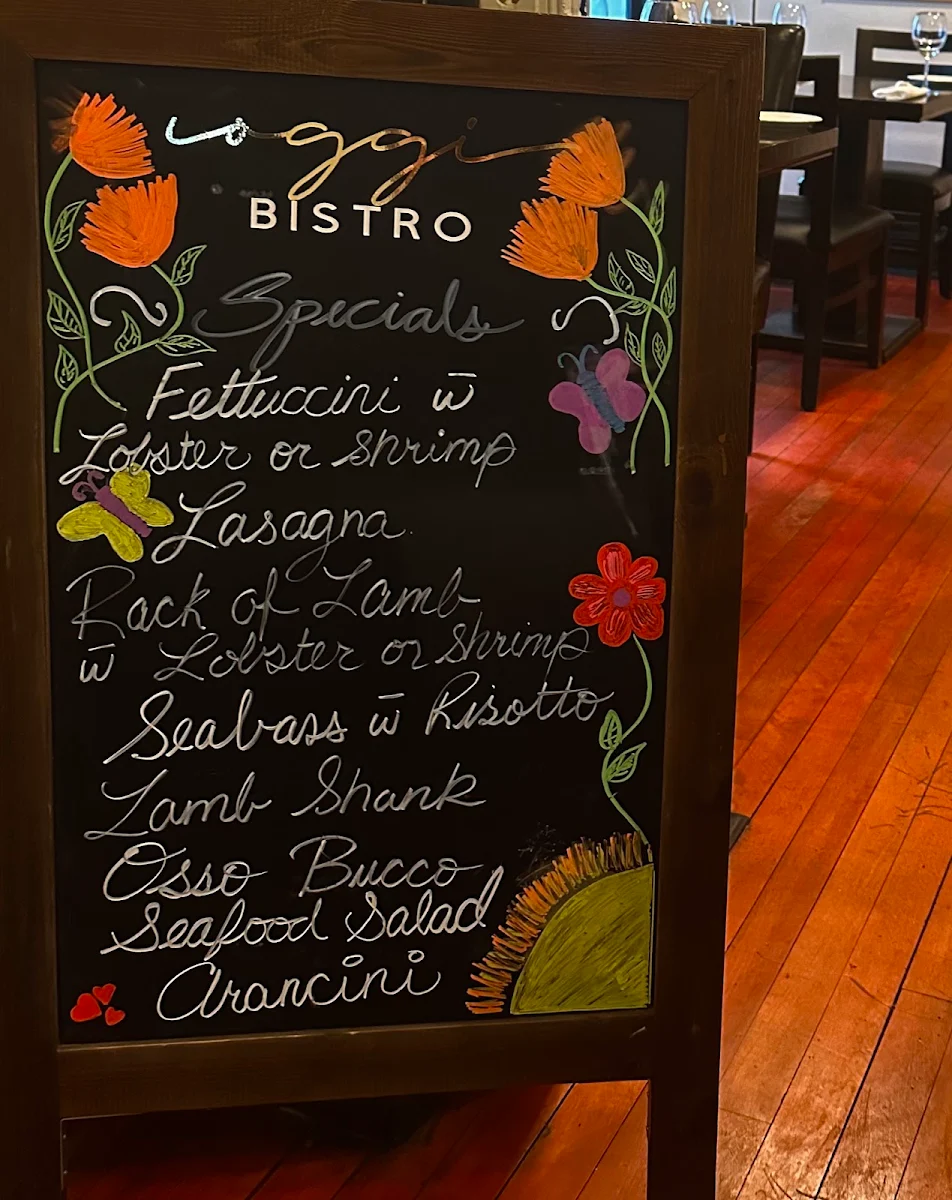 oggi
BISTRO
Specials
Fettuccini w̄
Lobster or Shrimp
Lasagna
Rack of Lamb
w̄ Lobster or Shrimp
Seabass w̄ Risotto
Lamb Shank
Osso Bucco
Seafood Salad
Arancini